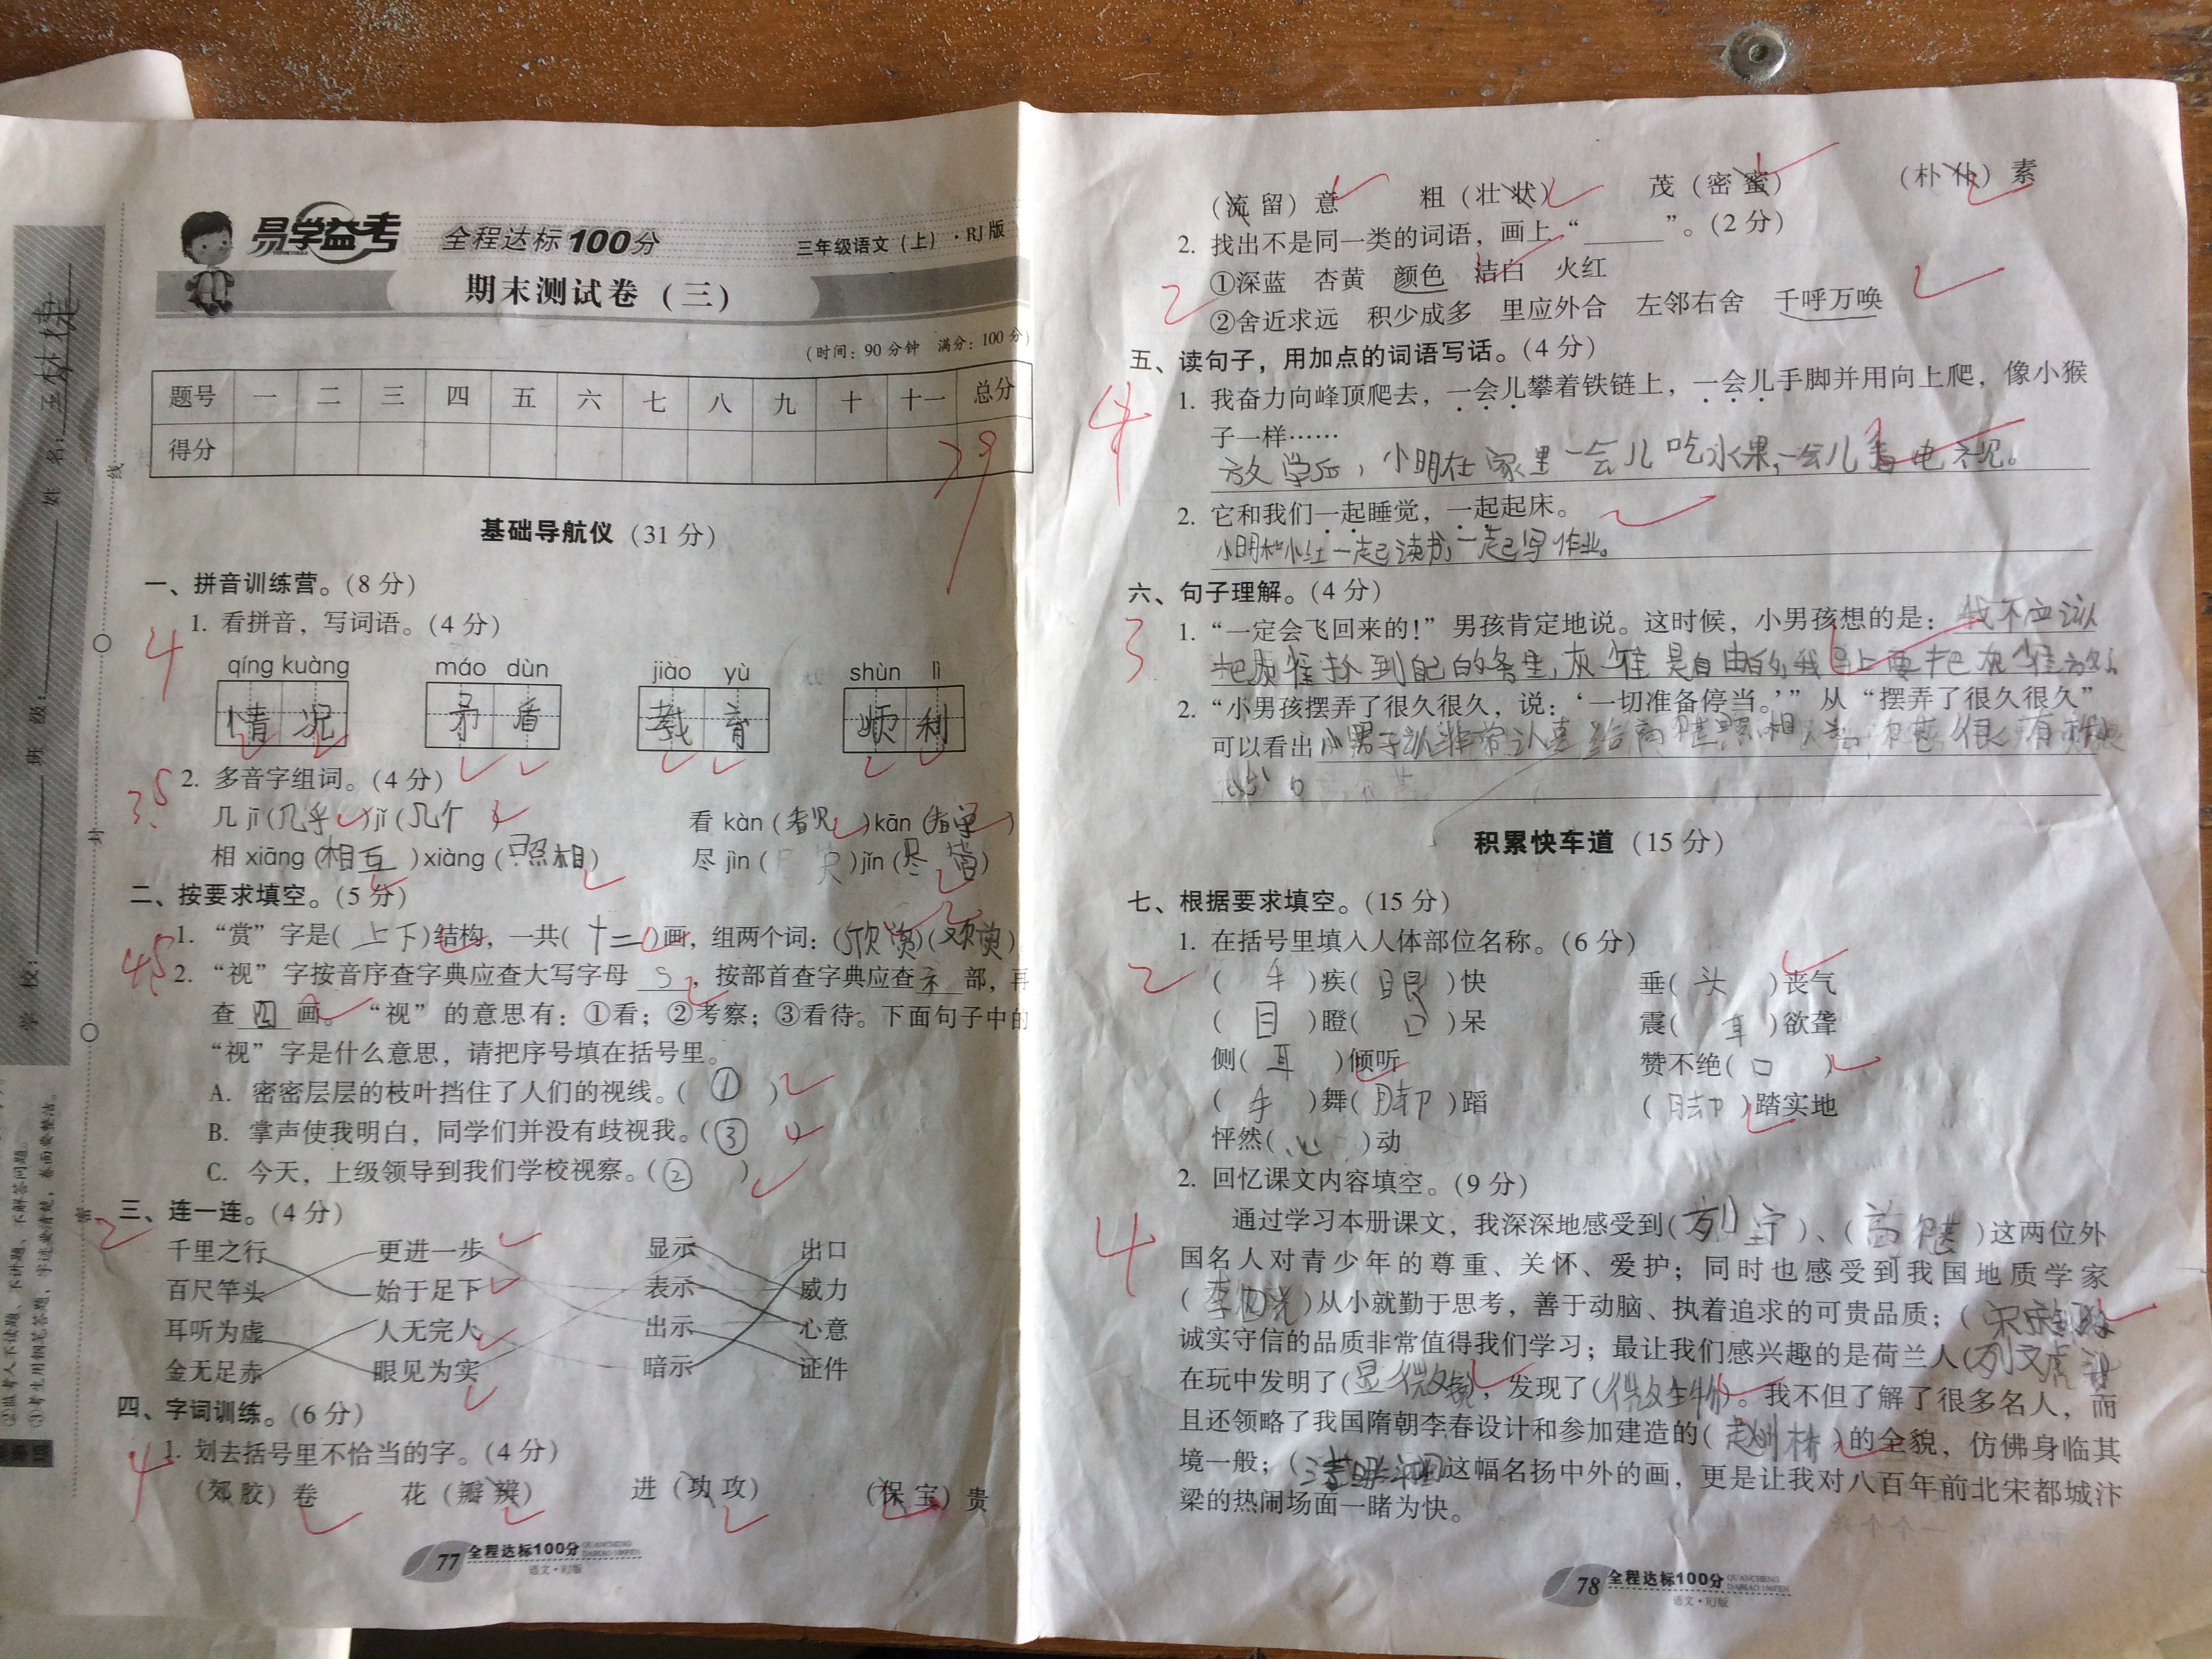 易学益考 全程达标100分 三年级语文(上)·RJ版
期末测试卷(三)
(时间:90分钟 满分:100分)
题号 一 二 三 四 五 六 七 八 九 十 十一 总分
得分 79
基础导航仪(31分)
一、拼音训练营。(8分)
4
1. 看拼音,写词语。(4分)
qíng kuàng máo dùn jiào yù shùn lì
情况 矛盾 教育 顺利
3.5
2. 多音字组词。(4分)
几 jī(几乎)jǐ(几个) 看 kàn(看见)kān(
相 xiāng(相互)xiàng(照相) 尽 jìn( )jǐn(尽管)
二、按要求填空。(5分)
4.5
1. “赏”字是(上下)结构,一共(十二)画,组两个词:(欣赏)(
2. “视”字按音序查字典应查大写字母 S ,按部首查字典应查 礻 部,再
查 四 画。“视”的意思有:①看;②考察;③看待。下面句子中的
“视”字是什么意思,请把序号填在括号里。
A. 密密层层的枝叶挡住了人们的视线。(①)
B. 掌声使我明白,同学们并没有歧视我。(③)
C. 今天,上级领导到我们学校视察。(②)
三、连一连。(4分)
2
千里之行 更进一步 显示 出口
百尺竿头 始于足下 表示 威力
耳听为虚 人无完人 出示 心意
金无足赤 眼见为实 暗示 证件
四、字词训练。(6分)
4
1. 划去括号里不恰当的字。(4分)
(郊 胶)卷 花(瓣 辨) 进(功 攻) (保 宝)贵
77 全程达标100分 QUANCHENG DABIAO 100FEN
语文·RJ版
(流 留)意 粗(壮 状) 茂(密 蜜) (朴 仆)素
2. 找出不是同一类的词语,画上“______”。(2分)
2
①深蓝 杏黄 颜色 洁白 火红
②舍近求远 积少成多 里应外合 左邻右舍 千呼万唤
五、读句子,用加点的词语写话。(4分)
4
1. 我奋力向峰顶爬去,一会儿攀着铁链上,一会儿手脚并用向上爬,像小猴
子一样……
放学后,小明在家里一会儿吃水果,一会儿看电视。
2. 它和我们一起睡觉,一起起床。
小明和小红一起读书,一起写作业。
六、句子理解。(4分)
3
1. “一定会飞回来的!”男孩肯定地说。这时候,小男孩想的是:我不应该
把灰雀抓到自己的
2. “小男孩摆弄了很久很久,说:‘一切准备停当。’”从“摆弄了很久很久”
可以看出小男孩非常认真给高尔基照相
积累快车道(15分)
七、根据要求填空。(15分)
1. 在括号里填入人体部位名称。(6分)
2
(手)疾(眼)快 垂(头)丧气
(目)瞪(口)呆 震(耳)欲聋
侧(耳)倾听 赞不绝(口)
(手)舞(脚)蹈 (脚)踏实地
怦然(心)动
2. 回忆课文内容填空。(9分)
4
通过学习本册课文,我深深地感受到(列宁)、(高尔基)这两位外
国名人对青少年的尊重、关怀、爱护;同时也感受到我国地质学家
(李四光)从小就勤于思考,善于动脑、执着追求的可贵品质;(
诚实守信的品质非常值得我们学习;最让我们感兴趣的是荷兰人(列文虎
在玩中发明了(显微镜),发现了(微生物)。我不但了解了很多名人,而
且还领略了我国隋朝李春设计和参加建造的(赵州 )的全貌,仿佛身临其
境一般;( )这幅名扬中外的画,更是让我对八百年前北宋都城汴
梁的热闹场面一睹为快。
78 全程达标100分 QUANCHENG DABIAO 100FEN
语文·RJ版
学 校: 班 级: 姓 名:
线 封 密